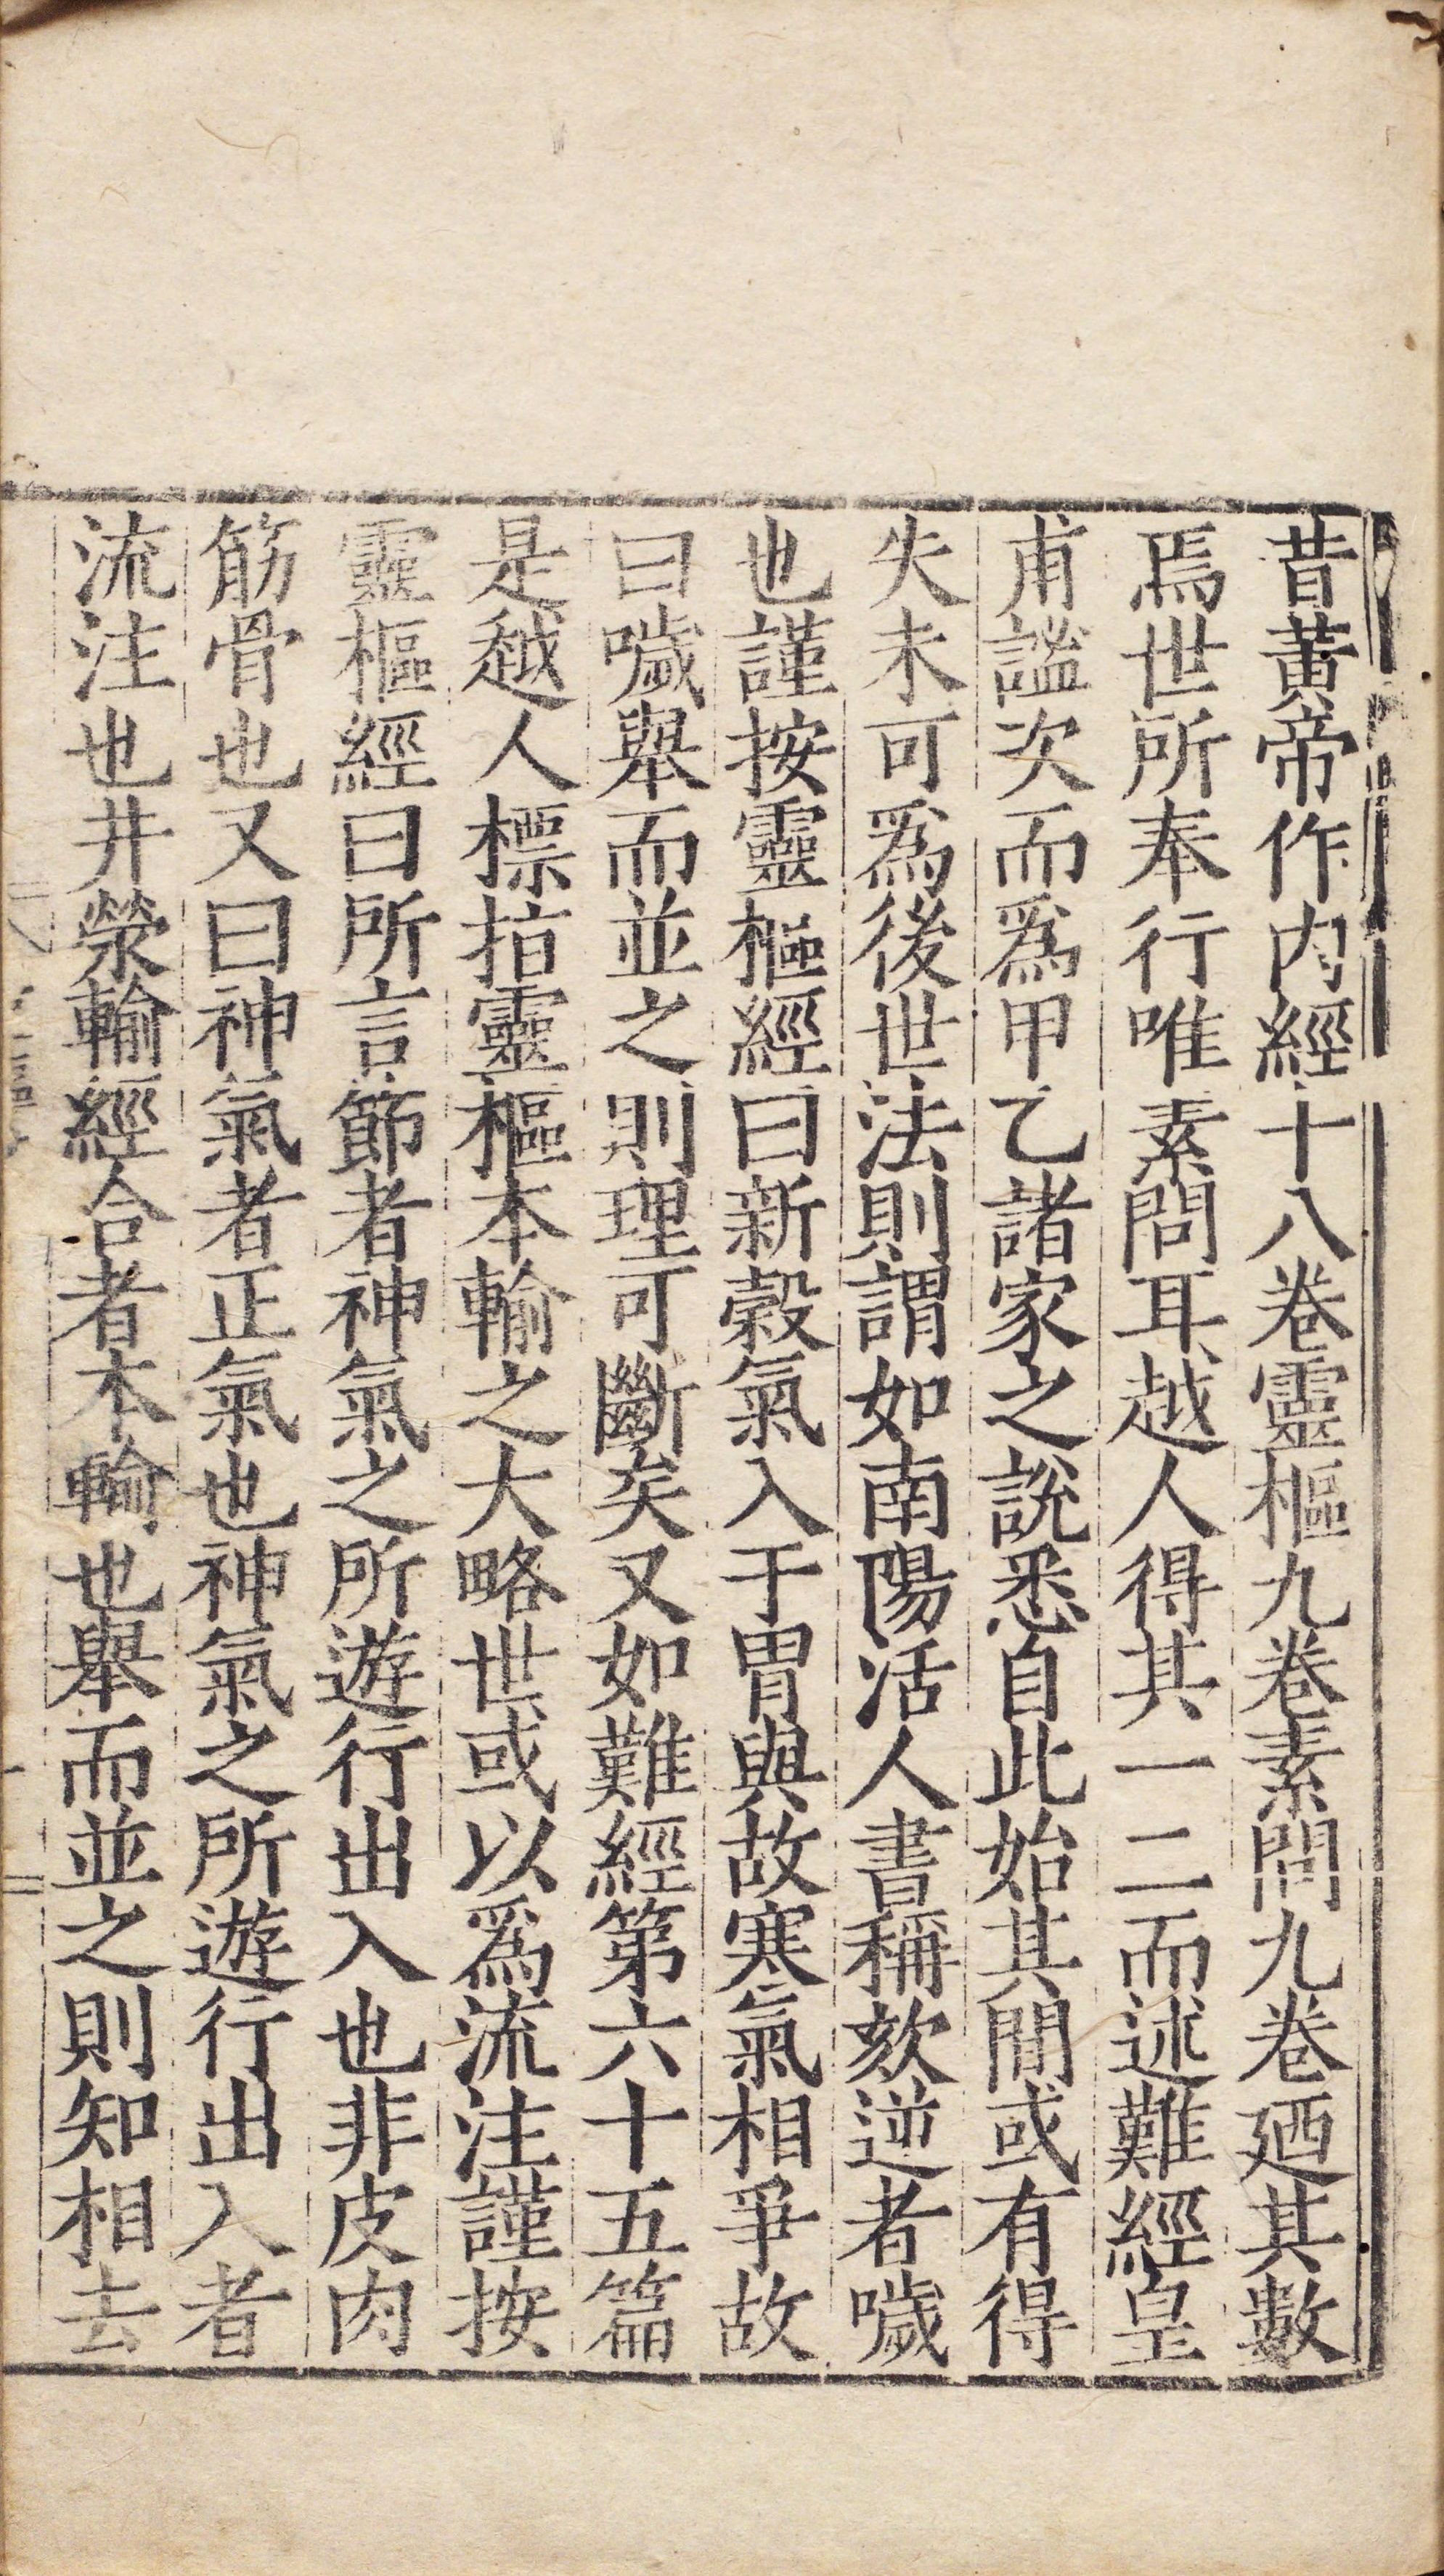 昔黃帝作內經十八卷靈樞九卷素問九卷廼其數
焉世所奉行唯素問耳越人得其一二而述難經皇
甫謐次而爲甲乙諸家之說悉自此始其間或有得
失未可爲後世法則謂如南陽活人書稱欬逆者噦
也謹按靈樞經曰新穀氣入于胃與故寒氣相爭故
曰噦舉而並之則理可斷矣又如難經第六十五篇
是越人標指靈樞本輸之大略世或以爲流注謹按
靈樞經曰所言節者神氣之所遊行出入也非皮肉
筋骨也又曰神氣者正氣也神氣之所遊行出入者
流注也井滎輸經合者本輸也舉而並之則知相去